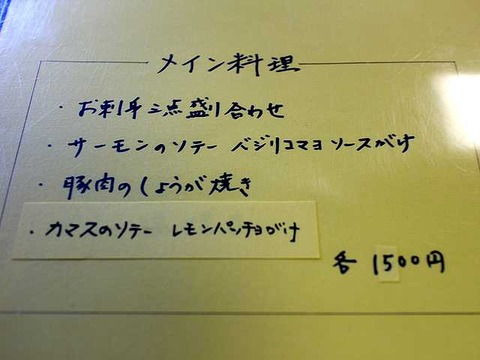 メイン料理
・お刺身三点盛り合わせ
・サーモンのソテー バジリコマヨソースがけ
・豚肉のしょうが焼き
・カマスのソテー レモンパンチョがけ
各 1500円